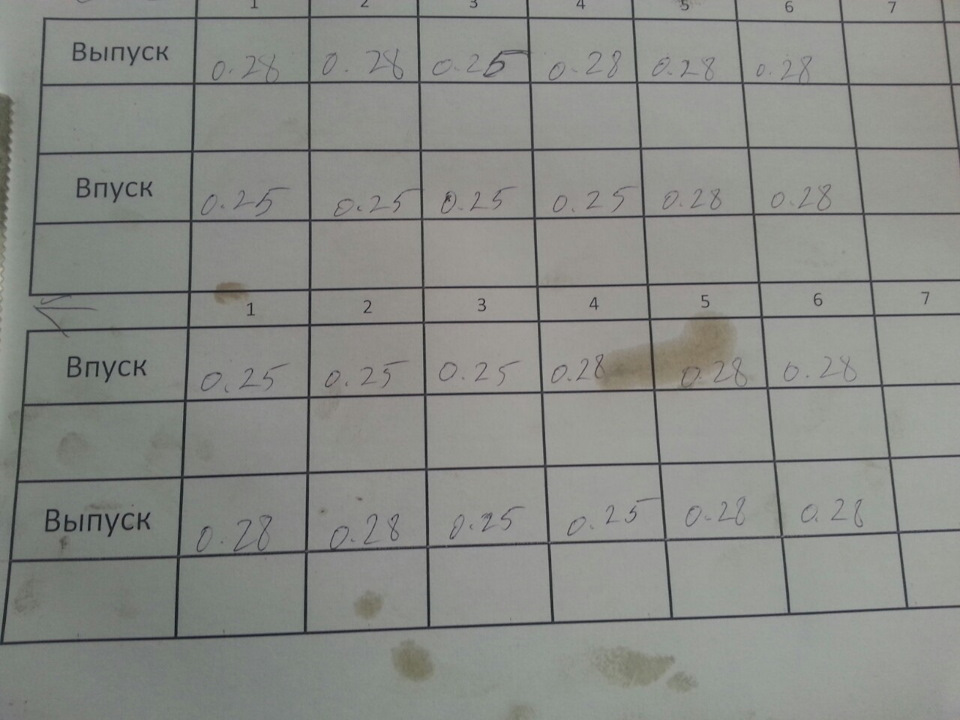 1 2 3 4 5 6 7
Выпуск 0.28 0.28 0.25 0.28 0.28 0.28
Впуск 0.25 0.25 0.25 0.25 0.28 0.28
1 2 3 4 5 6 7
Впуск 0.25 0.25 0.25 0.28 0.28 0.28
Выпуск 0.28 0.28 0.25 0.25 0.28 0.28